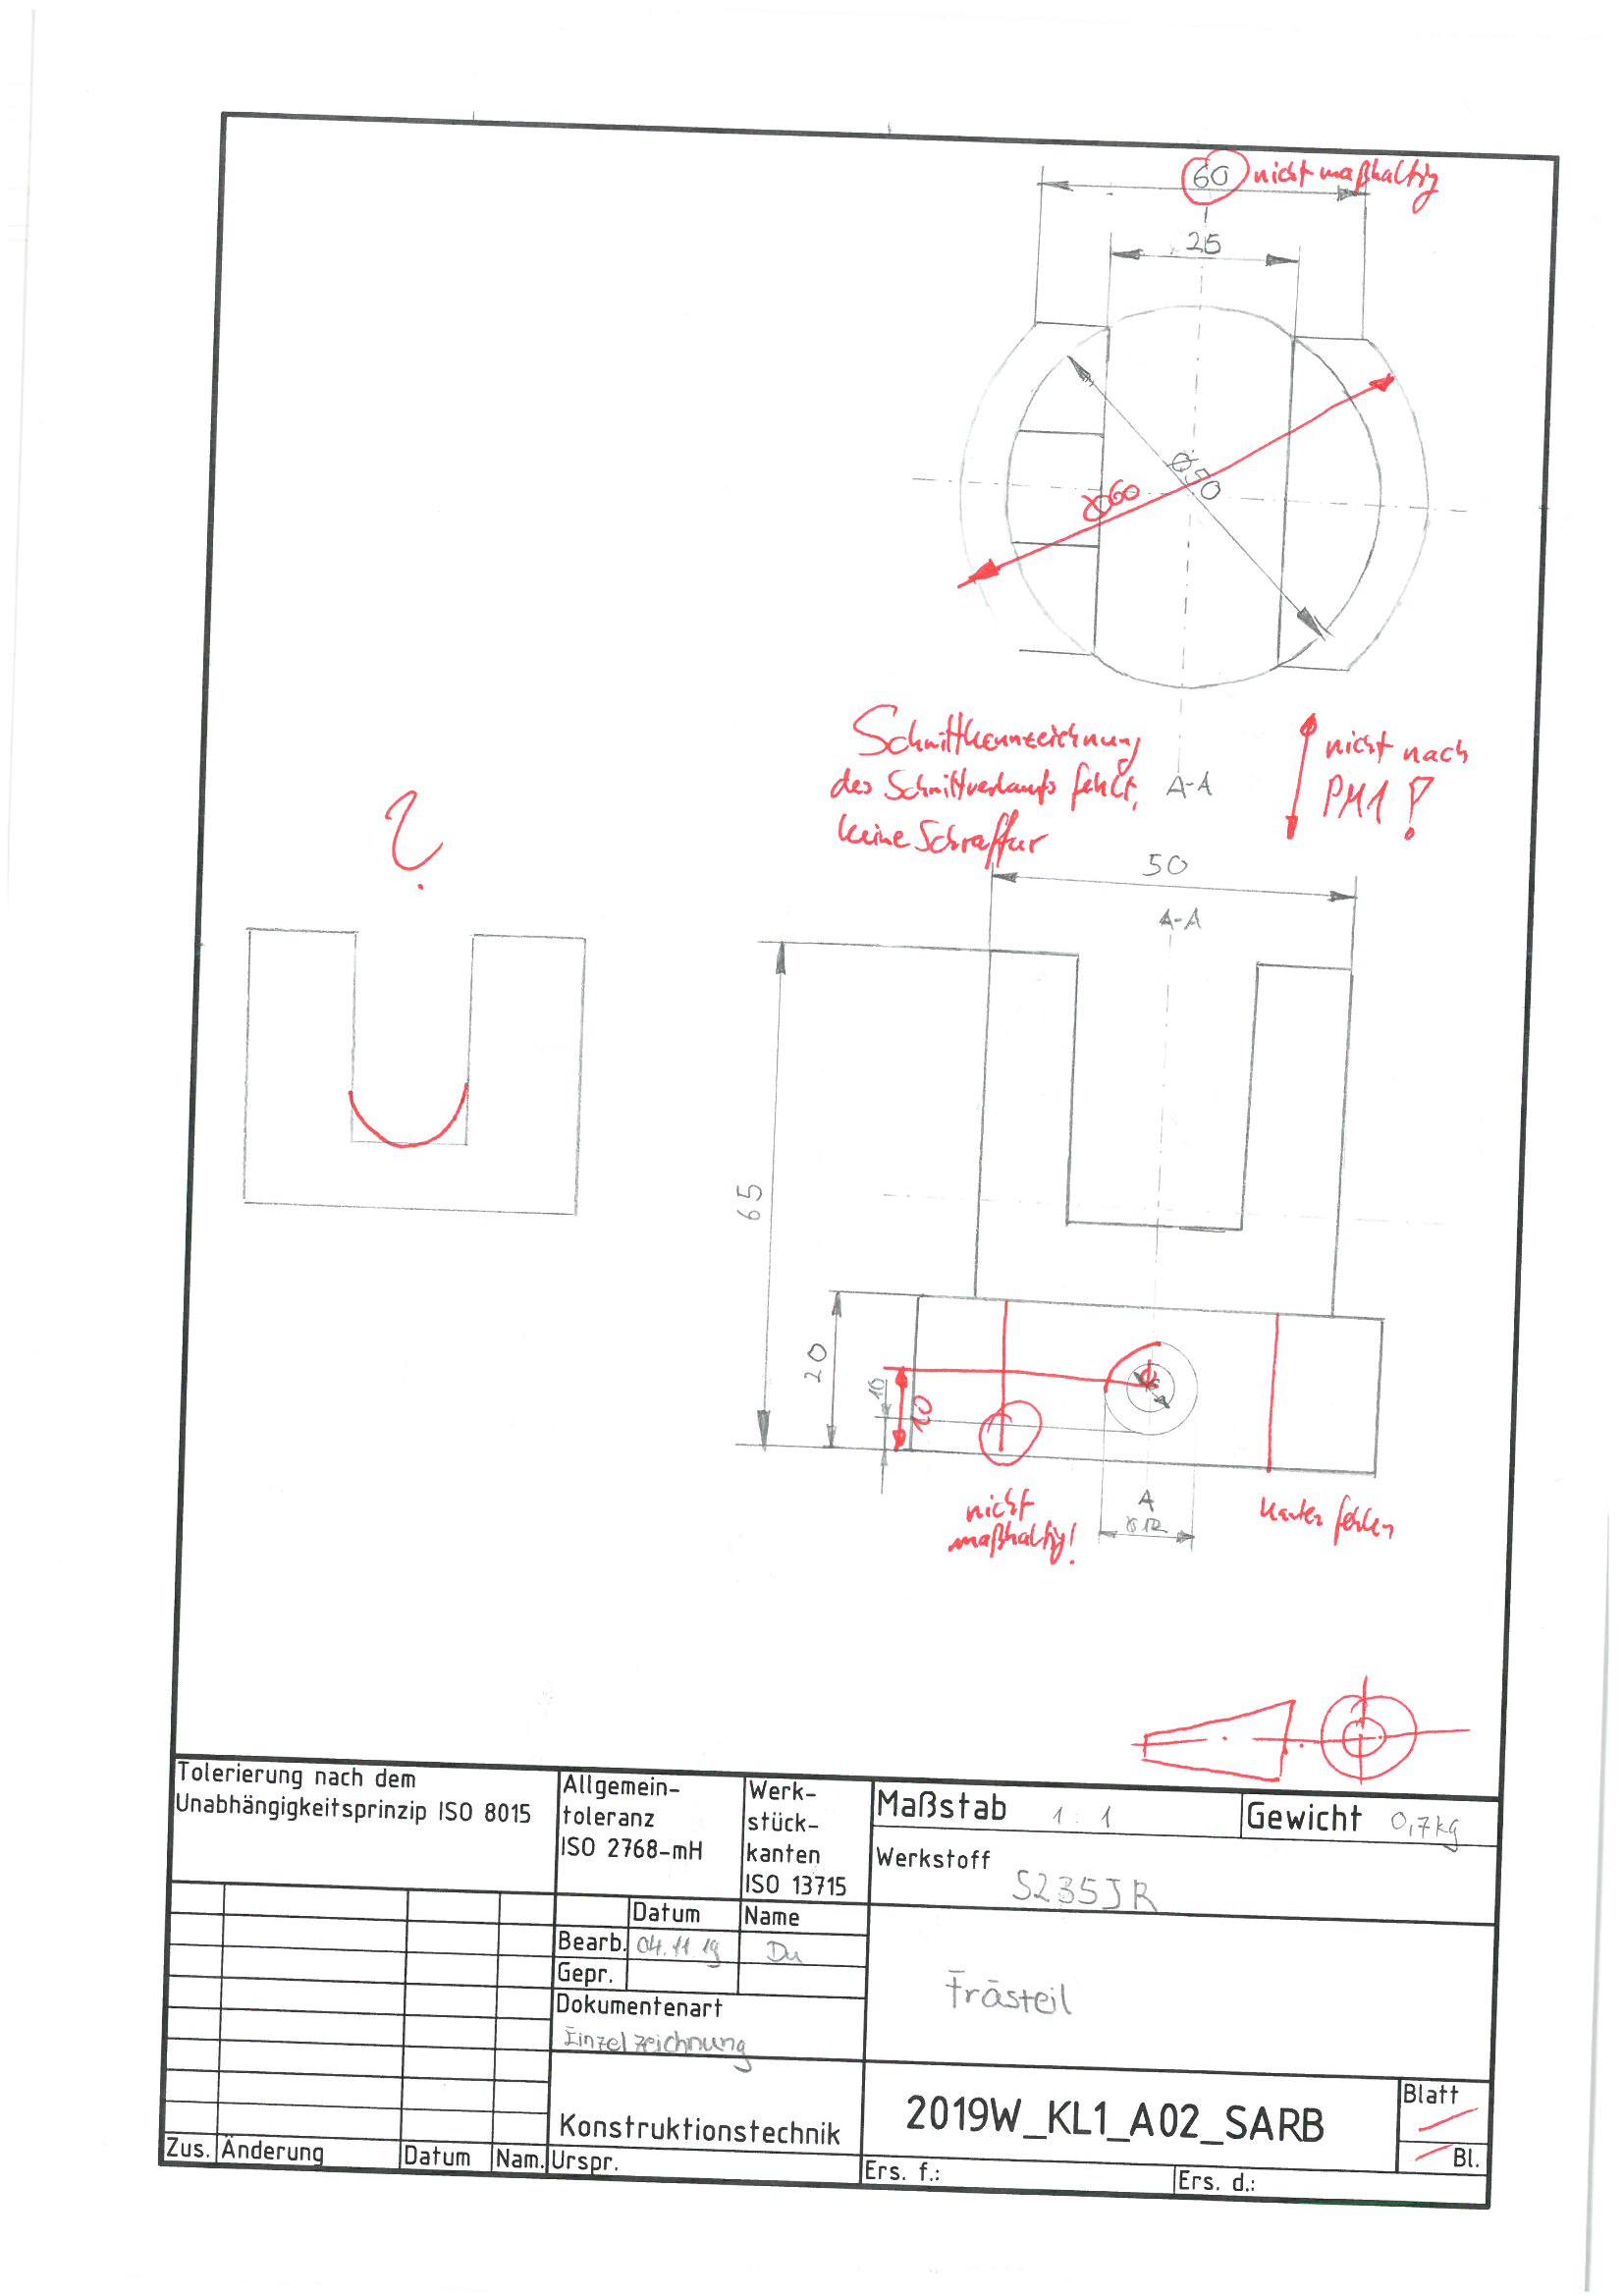 60 nicht maßhaltig
25
Ø50
Ø60
Schnittkennzeichnung
des Schnittverlaufs fehlt,
keine Schraffur
A-A
nicht nach
PM1!
?
50
A-A
65
20
10
10
nicht
maßhaltig!
A
Ø12
Kanten fehlen
Tolerierung nach dem
Unabhängigkeitsprinzip ISO 8015
Allgemein-
toleranz
ISO 2768-mH
Werk-
stück-
kanten
ISO 13715
Maßstab 1:1
Gewicht 0,7kg
Werkstoff S235JR
Datum Name
Bearb. 04.11.19 Du
Gepr.
Dokumentenart
Einzelzeichnung
Frästeil
Konstruktionstechnik
2019W_KL1_A02_SARB
Blatt
Bl.
Zus. Änderung Datum Nam. Urspr.
Ers. f.: Ers. d.: